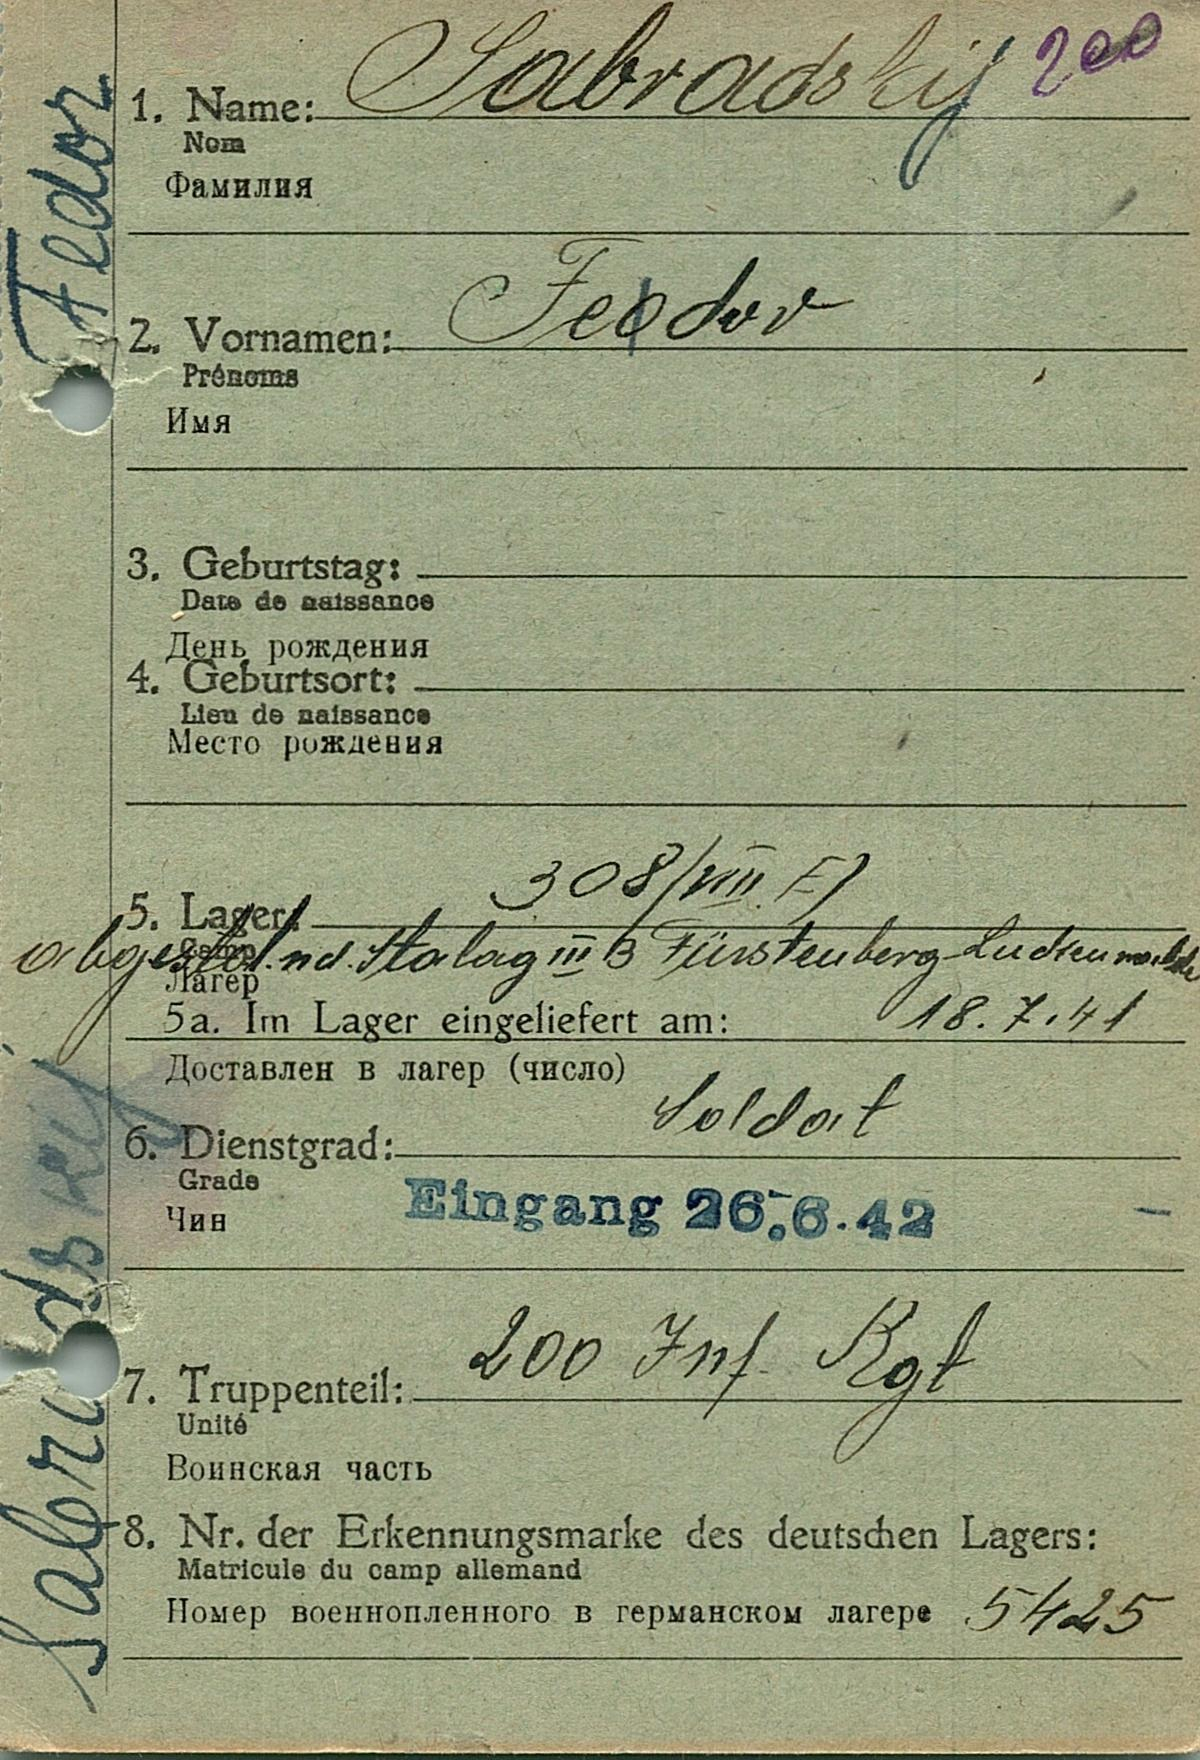 Sabradskij 200
1. Name:
Nom
Фамилия
Feodor
2. Vornamen:
Prénoms
Имя
3. Geburtstag:
Date de naissance
День рождения
4. Geburtsort:
Lieu de naissance
Место рождения
308/VIII E)
5. Lager:
Camp
abgest. nd. Stalag III B Fürstenberg
Лагер
5a. Im Lager eingeliefert am: 18.7.41
Доставлен в лагер (число)
Soldat
6. Dienstgrad:
Grade
Eingang 26.6.42
Чин
200 Inf. Rgt
7. Truppenteil:
Unité
Воинская часть
8. Nr. der Erkennungsmarke des deutschen Lagers:
Matricule du camp allemand
Номер военнопленного в германском лагере 5425
Sabradskij Fedor